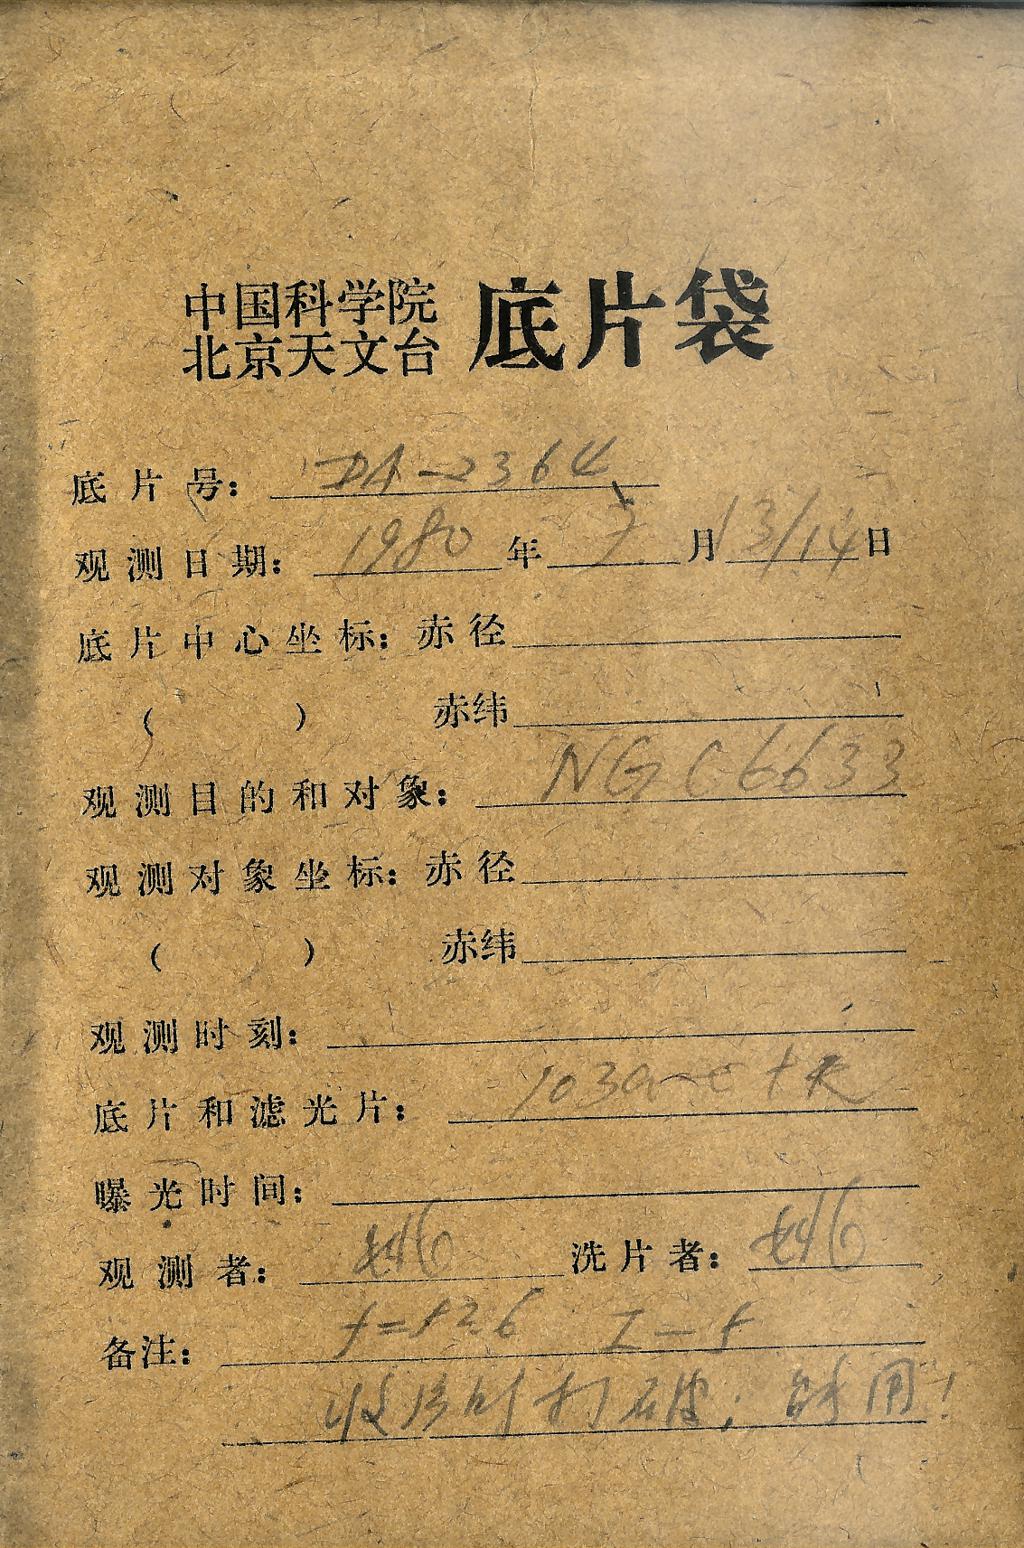 中国科学院
北京天文台 底片袋
底片号: DA-2364
观测日期: 1980 年 7 月 13/14 日
底片中心坐标: 赤径
( ) 赤纬
观测目的和对象: NGC6633
观测对象坐标: 赤径
( ) 赤纬
观测时刻:
底片和滤光片: 103a
曝光时间:
观测者: 洗片者:
备注:
打破; 用!